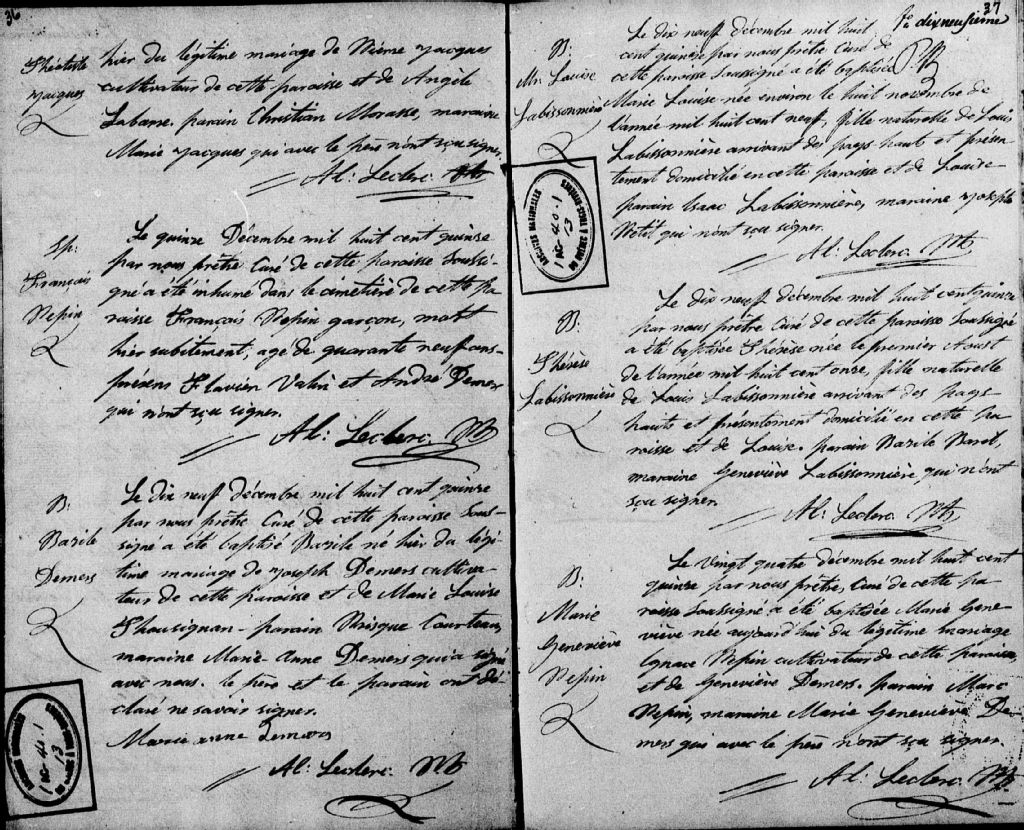 36
Théotiste
Jacques
hier du légitime mariage de Pierre Jacques
cultivateur de cette paroisse et de Angèle
Labarre. parain Christian Morasse, maraine
Marie Jacques qui avec le père n'ont sçu signer.
Al: Leclerc Ptr
Sp:
François
Pepin
Le quinze Décembre mil huit cent quinze
par nous prêtre Curé de cette paroisse soussi-
gné a été inhumé dans le cemetière de cette pa
roisse François Pepin garçon, mort
hier subitement, agé de quarante neuf ans-
présens Flavien Valin et André Demers
qui n'ont sçu signer.
Al: Leclerc Ptr
B:
Bazile
Demers
Le dix neuf décembre mil huit cent quinze
par nous prêtre Curé de cette paroisse sous-
signé a été baptisé Bazile né hier du légi-
time mariage de Joseph Demers cultiva-
teur de cette paroisse et de Marie Louise
Thousignan- parain Prisque Courteau,
maraine Marie Anne Demers qui a signé
avec nous. le père et le parain ont dé
claré ne savoir signer.
Marie anne Demers
Al: Leclerc. Ptr
1 AC-40-1
13
37
dixneufieme
B:
Mie Louise
Labissonnière
Le dix neuf décembre mil huit
cent quinze par nous prêtre Curé de
cette paroisse soussigné a été baptisée
Marie Louise née environ le huit novembre de
l'année mil huit cent neuf, fille naturelle de Louis
Labissonnière arrivant des pays-hauts et présen
tement domicilié en cette paroisse et de Louise
parain Isaac Labissonnière, maraine Josephe
Petit qui n'ont sçu signer.
Al: Leclerc Ptr
ARCHIVES NATIONALES
DU QUÉBEC À TROIS-RIVIÈRES
1 AC-40-1
13
B:
Thérèse
Labissonnière
Le dix neuf décembre mil huit cent quinze
par nous prêtre Curé de cette paroisse soussigné
a été baptisée Thérèse née le premier Aoust
de l'année mil huit cent onze, fille naturelle
de Louis Labissonnière arrivant des pays
hauts et présentement domicilié en cette pa
roisse et de Louise. parain Bazile Baret,
maraine Geneviève Labissonnière, qui n'ont
sçu signer.
Al: Leclerc Ptr
B:
Marie
Geneviève
Pepin
Le vingt quatre décembre mil huit cent
quinze par nous prêtre, Curé de cette pa-
roisse soussigné a été baptisée Marie Gene-
viève née aujourd'hui du légitime mariage
Ignace Pepin cultivateur de cette paroisse,
et de Geneviève Demers. parain Marc
Pepin, maraine Marie Geneviève De-
mers qui avec le père n'ont sçu signer.
Al: Leclerc. Ptr